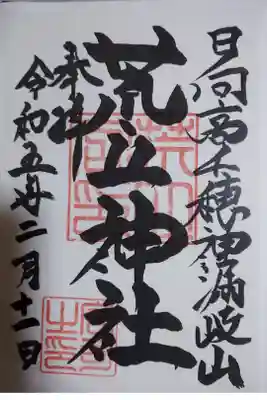 日向高千穂神漏岐山
荒立神社
奉拝
令和五年二月十一日